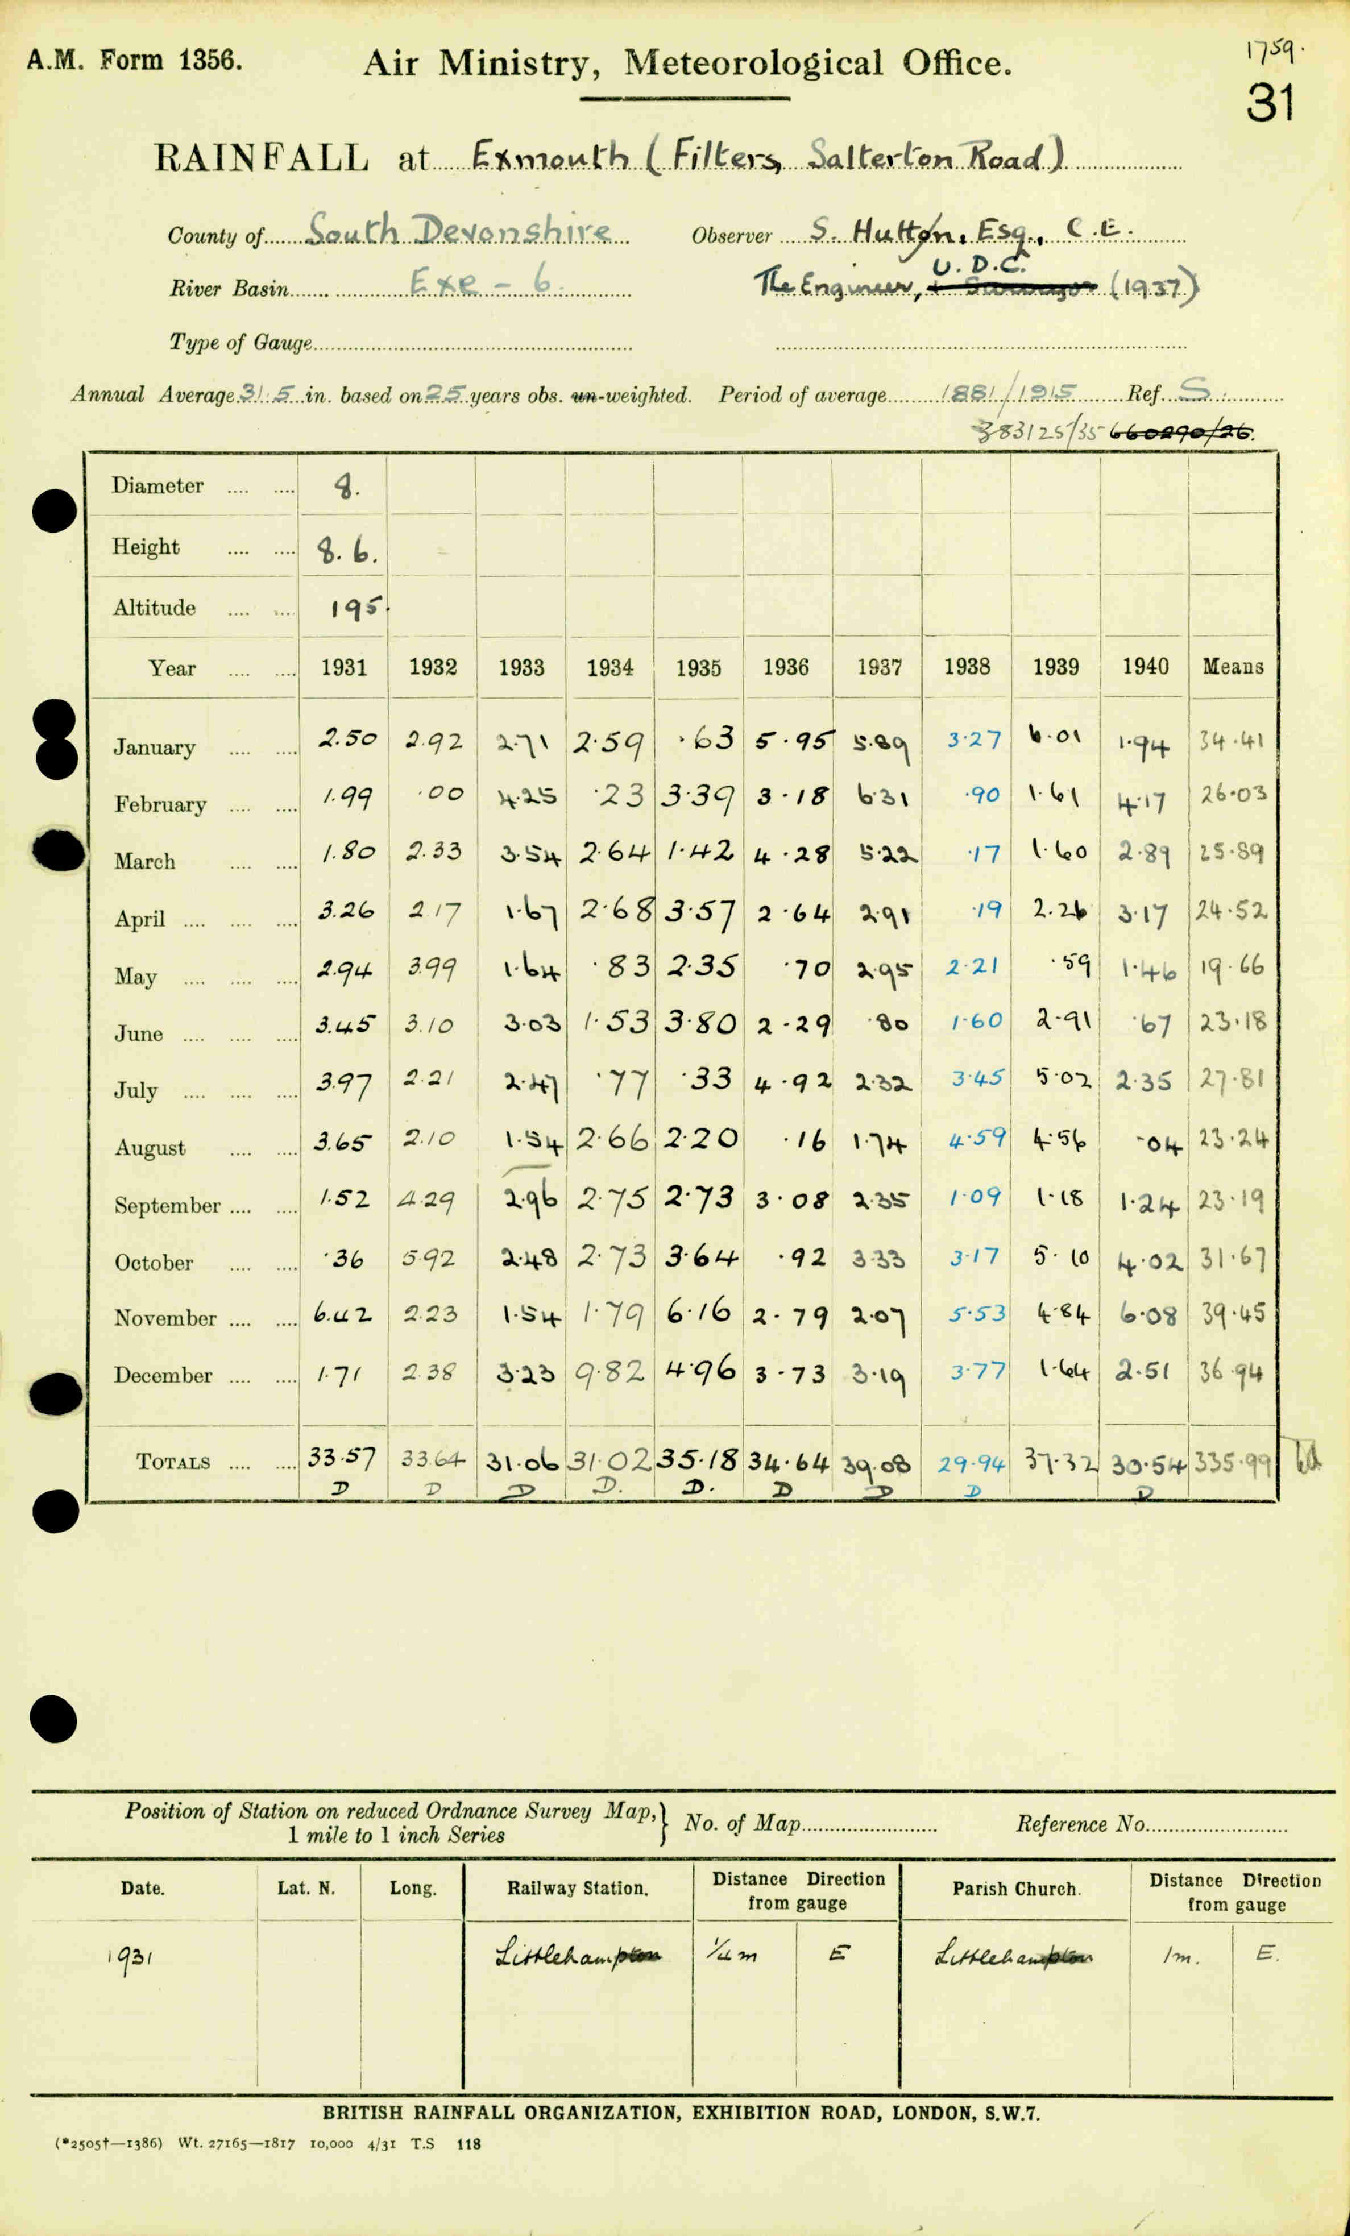 A.M. Form 1356.
Air Ministry, Meteorological Office.
1759.
31
RAINFALL at Exmouth (Filters, Salterton Road)
County of South Devonshire Observer S. Hutton, Esq., C.E.
River Basin Exe - 6. The Engineer, U.D.C. (1937)
Type of Gauge
Annual Average 31.5 in. based on 25 years obs. un-weighted. Period of average 1881/1915 Ref. S.
383125/35 660290/26.
Diameter 8.
Height 8.6.
Altitude 195.
Year 1931 1932 1933 1934 1935 1936 1937 1938 1939 1940 Means
January 2.50 2.92 2.71 2.59 .63 5.95 5.89 3.27 6.01 1.94 34.41
February 1.99 .00 4.25 .23 3.39 3.18 6.31 .90 1.61 4.17 26.03
March 1.80 2.33 3.54 2.64 1.42 4.28 5.22 .17 1.60 2.89 25.89
April 3.26 2.17 1.67 2.68 3.57 2.64 2.91 .19 2.26 3.17 24.52
May 2.94 3.99 1.64 .83 2.35 .70 2.95 2.21 .59 1.46 19.66
June 3.45 3.10 3.03 1.53 3.80 2.29 .80 1.60 2.91 .67 23.18
July 3.97 2.21 2.47 .77 .33 4.92 2.32 3.45 5.02 2.35 27.81
August 3.65 2.10 1.54 2.66 2.20 .16 1.74 4.59 4.56 .04 23.24
September 1.52 4.29 2.96 2.75 2.73 3.08 2.35 1.09 1.18 1.24 23.19
October .36 5.92 2.48 2.73 3.64 .92 3.33 3.17 5.10 4.02 31.67
November 6.42 2.23 1.54 1.79 6.16 2.79 2.07 5.53 4.84 6.08 39.45
December 1.71 2.38 3.23 9.82 4.96 3.73 3.19 3.77 1.64 2.51 36.94
TOTALS 33.57 33.64 31.06 31.02 35.18 34.64 39.08 29.94 37.32 30.54 335.99
D D D D. D. D D D D
Position of Station on reduced Ordnance Survey Map, 1 mile to 1 inch Series } No. of Map Reference No.
Date. Lat. N. Long. Railway Station. Distance Direction from gauge Parish Church. Distance Direction from gauge
1931 Littlehampton 1/4 m E Littlehampton 1m. E.
BRITISH RAINFALL ORGANIZATION, EXHIBITION ROAD, LONDON, S.W.7.
(*2505†—1386) Wt. 27165—1817 10,000 4/31 T.S 118